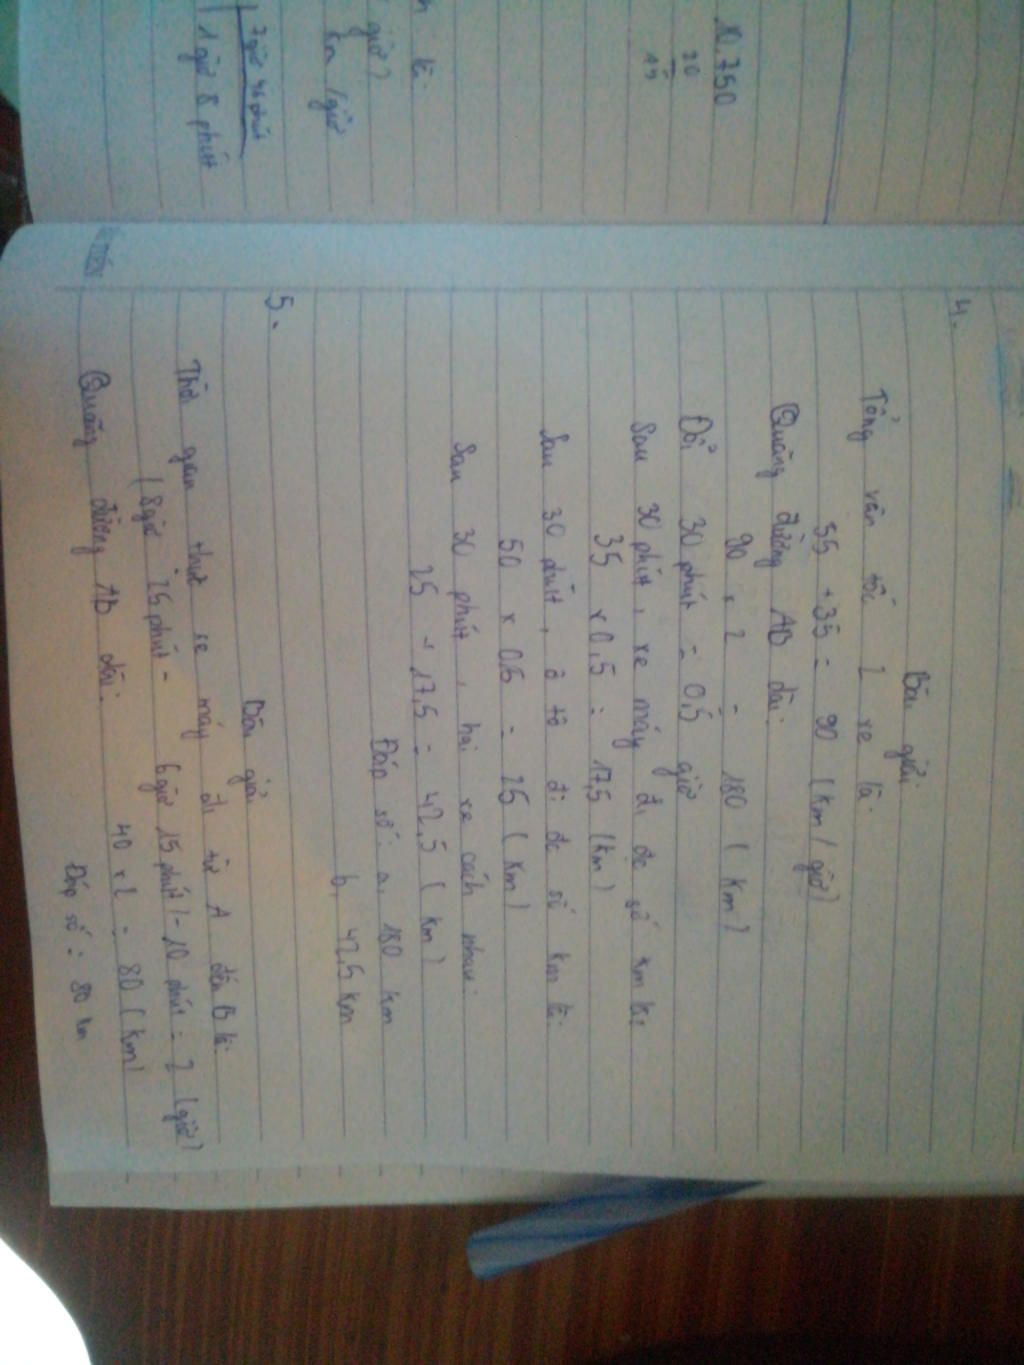 10.750
20
15
là.
giờ)
km/giờ
7 giờ 46 phút
1 giờ 8 phút
4.
Bài giải
Tổng vận tốc 2 xe là:
55 + 35 = 90 (km/giờ)
Quãng đường AB dài:
90 x 2 = 180 (km)
Đổi 30 phút = 0,5 giờ
Sau 30 phút, xe máy đi đc số km là:
35 x 0,5 = 17,5 (km)
Sau 30 phút, ô tô đi đc số km là:
50 x 0,5 = 25 (km)
Sau 30 phút, hai xe cách nhau:
25 + 17,5 = 42,5 (km)
Đáp số: a, 180 km
b, 42,5 km
5.
Bài giải
Thời gian thực xe máy đi từ A đến B là:
(8giờ 25 phút - 6 giờ 15 phút) - 10 phút = 2 (giờ)
Quãng đường AB dài:
40 x 2 = 80 (km)
Đáp số: 80 km